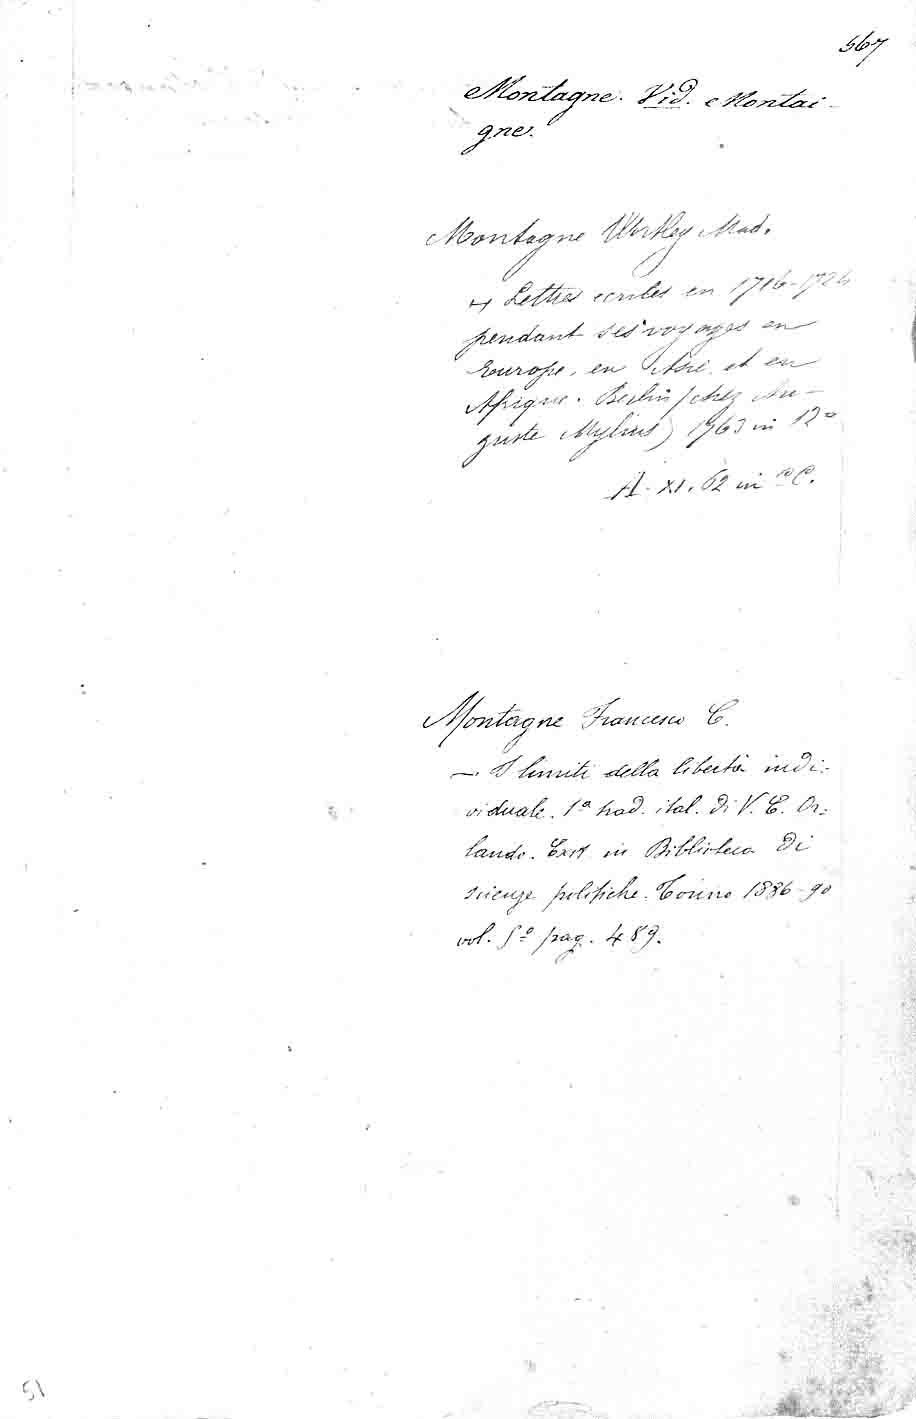 567
Montagne. Vid. Montai-
gne.
Montagne Wortley Mad.
Lettres ecrites en 1716-1724
pendant ses voyages en
Europe, en Asie, et en
Afrique. Berlin (chez Au-
guste Mylius) 1763 in 12º
A. XI. 62 in
Montagne Francesco C.
— I limiti della libertà indi:
viduale. 1ª trad. ital. di V. E. Or:
lando. in Biblioteca di
scienze politiche. Torino 1886-90
vol. 5º pag. 489.
51